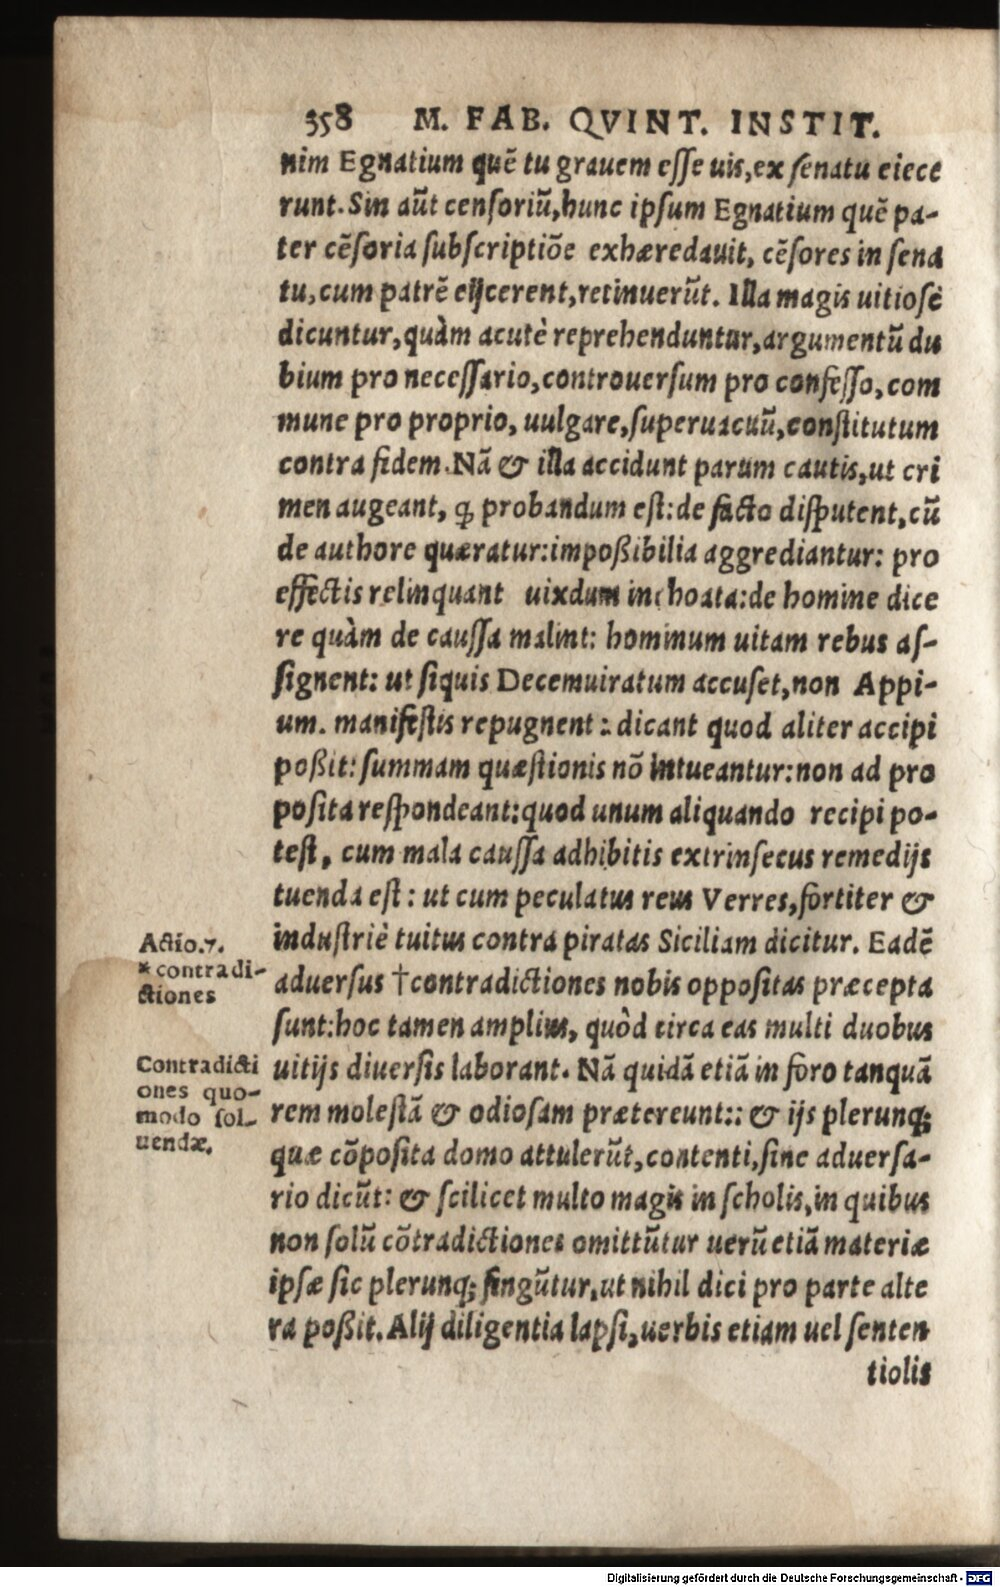 358 M. FAB. QVINT. INSTIT.
nim Egnatium quē tu grauem esse uis, ex senatu eiece
runt. Sin aūt censoriū, hunc ipsum Egnatium quē pa-
ter cēsoria subscriptiōe exhæredauit, cēsores in sena
tu, cum patrē eijcerent, retinuerūt. Illa magis uitiosè
dicuntur, quàm acutè reprehenduntur, argumentū du
bium pro necessario, controuersum pro confesso, com
mune pro proprio, uulgare, superuacuū, constitutum
contra fidem. Nā & illa accidunt parum cautis, ut cri
men augeant, ꝙ probandum est: de facto disputent, cū
de authore quæratur: impoßibilia aggrediantur: pro
effectis relinquant uixdum inchoata: de homine dice
re quàm de caussa malint: hominum uitam rebus as-
signent: ut siquis Decemuiratum accuset, non Appi-
um. manifestis repugnent: dicant quod aliter accipi
poßit: summam quæstionis nō intueantur: non ad pro
posita respondeant: quod unum aliquando recipi po-
test, cum mala caussa adhibitis extrinsecus remedijs
tuenda est: ut cum peculatus reus Verres, fortiter &
industriè tuitus contra piratas Siciliam dicitur. Eadē
aduersus †contradictiones nobis oppositas præcepta
sunt: hoc tamen amplius, quòd circa eas multi duobus
uitijs diuersis laborant. Nā quidā etiā in foro tanquā
rem molestā & odiosam prætereunt:: & ijs plerunq;
quæ cōposita domo attulerūt, contenti, sine aduersa-
rio dicūt: & scilicet multo magis in scholis, in quibus
non solū cōtradictiones omittūtur uerū etiā materiæ
ipsæ sic plerunq; fingūtur, ut nihil dici pro parte alte
ra poßit. Alij diligentia lapsi, uerbis etiam uel senten
tiolis
Actio.7.
*contradi-
ctiones
Contradicti
ones quo-
modo sol-
uendæ.
Digitalisierung gefördert durch die Deutsche Forschungsgemeinschaft - DFG